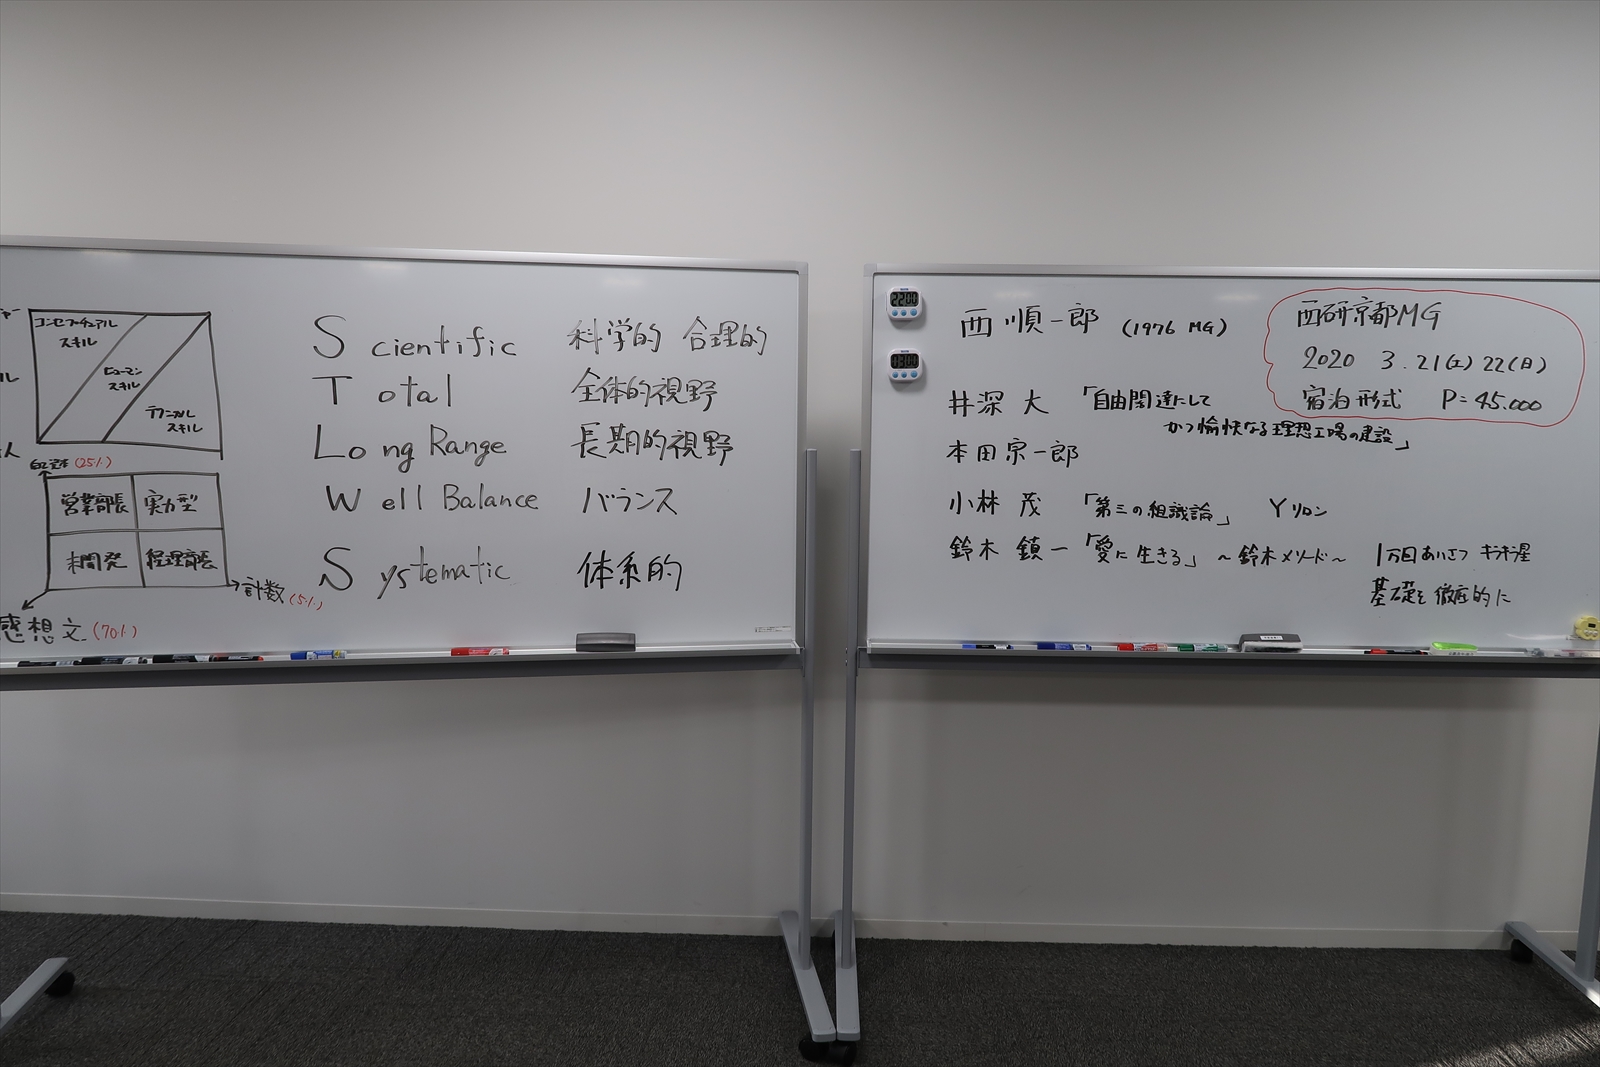 コンセプチュアル
スキル
ヒューマン
スキル
テクニカル
スキル
自己資本 (25%)
営業部長 実力型
未開発 経理部長
計数 (5%)
感想文 (70%)
Scientific 科学的 合理的
Total 全体的視野
Long Range 長期的視野
Well Balance バランス
Systematic 体系的
22:00
西 順一郎 (1976 MG)
西研京都MG
2020 3.21(土) 22(日)
宿泊形式 P=45.000
井深 大 「自由闊達にして
かつ愉快なる理想工場の建設」
本田宗一郎
小林 茂 「第三の組識論」 Yリロン
鈴木 鎮一 「愛に生きる」 ~鈴木メソード~ 1万回あいさつ キラキラ星
基礎を徹底的に